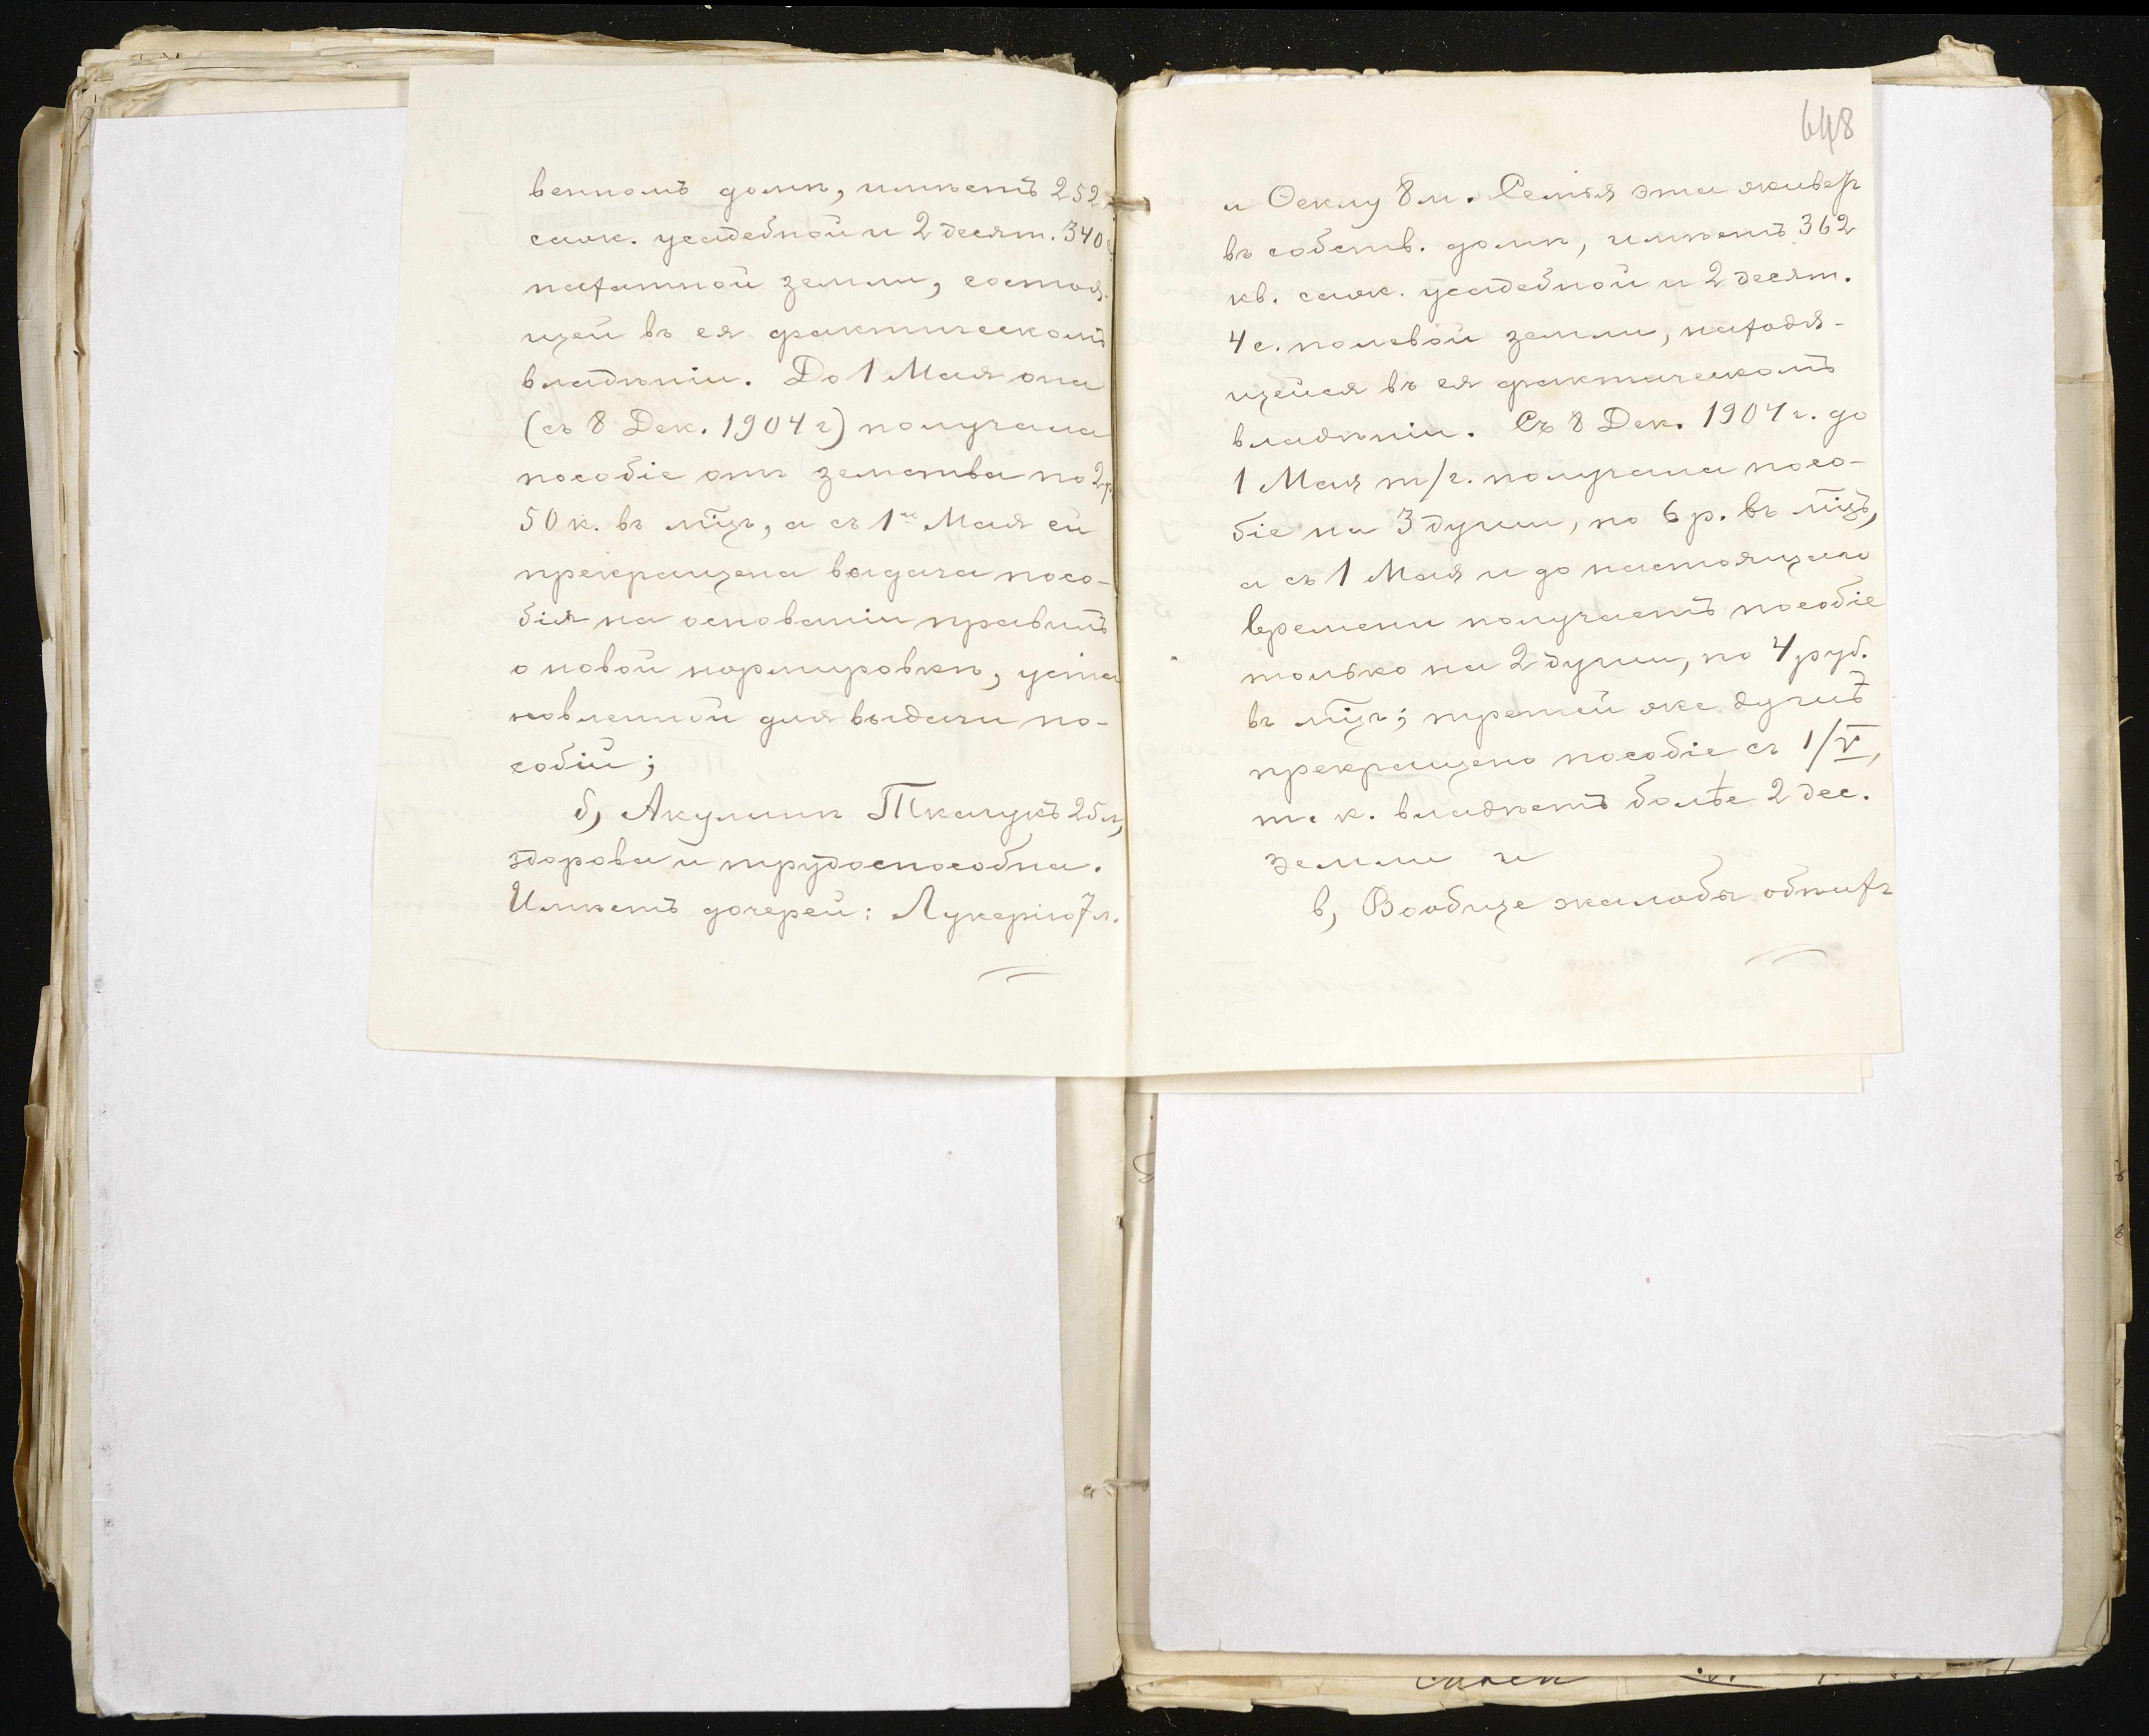 венномъ домѣ, имѣетъ 252
саж. усадебной и 2 десят. 340 с.
пахатной земли, состоя-
щей въ ея фактическомъ
владѣніи. До 1 Мая она
(съ 8 Дек. 1904 г) получала
пособіе отъ земства по 2 р
50 к. въ мѣц, а съ 1го Мая ей
прекращена выдача посо-
бія на основаніи правилъ
о новой нормировкѣ, уста
новленной для выдачи по-
собій;
б, Акулинѣ Ткачукъ 25 л,
здорова и трудоспособна.
Имѣетъ дочерей: Лукерію 7 л.
648
и Ѳеклу 8 м. Семья эта живетъ
въ собств. домѣ, имѣетъ 362
кв. саж. усадебной и 2 десят.
4 с. полевой земли, находя-
щейся въ ея фактическомъ
владѣніи. Съ 8 Дек. 1904 г. до
1 Мая т/г. получала посо-
біе на 3 души, по 6 р. въ мѣцъ,
а съ 1 Мая и до настоящаго
времени получаетъ пособіе
только на 2 души, по 4 руб.
въ мѣцъ; третьей же душѣ
прекращено пособіе съ 1/V,
т. к. владѣетъ болѣе 2 дес.
земли и
в, Вообще жалобы обѣихъ